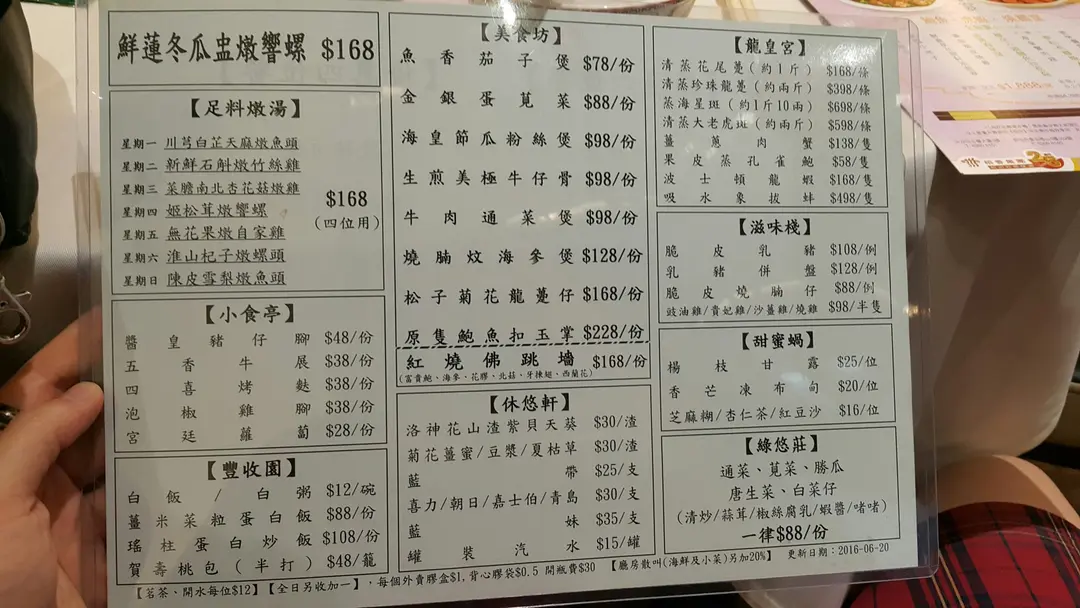 鮮蓮冬瓜盅燉響螺 $168
【足料燉湯】
星期一 川芎白芷天麻燉魚頭
星期二 新鮮石斛燉竹絲雞
星期三 菜膽南北杏花菇燉雞
星期四 姬松茸燉響螺
星期五 無花果燉自家雞
星期六 淮山杞子燉螺頭
星期日 陳皮雪梨燉魚頭
$168
(四位用)
【小食亭】
醬皇豬仔腳 $48/份
五香牛展 $38/份
四喜烤麩 $38/份
泡椒雞腳 $38/份
宮廷蘿蔔 $28/份
【豐收園】
白飯/白粥 $12/碗
薑米菜粒蛋白飯 $88/份
瑤柱蛋白炒飯 $108/份
賀壽桃包(半打) $48/籠
【美食坊】
魚香茄子煲 $78/份
金銀蛋莧菜 $88/份
海皇節瓜粉絲煲 $98/份
生煎美極牛仔骨 $98/份
牛肉通菜煲 $98/份
燒腩炆海參煲 $128/份
松子菊花龍躉仔 $168/份
原隻鮑魚扣玉掌 $228/份
紅燒佛跳牆 $168/份
(富貴鮑、海參、花膠、北菇、牙揀翅、西蘭花)
【休悠軒】
洛神花山渣紫貝天葵 $30/渣
菊花薑蜜/豆漿/夏枯草 $30/渣
藍帶 $25/支
喜力/朝日/嘉士伯/青島 $30/支
藍妹 $35/支
罐裝汽水 $15/罐
【龍皇宮】
清蒸花尾躉(約1斤) $168/條
清蒸珍珠龍躉(約兩斤) $398/條
蒸海星斑(約1斤10兩) $698/條
清蒸大老虎斑(約兩斤) $598/條
薑蔥肉蟹 $138/隻
果皮蒸孔雀鮑 $58/隻
波士頓龍蝦 $168/隻
吸水象拔蚌 $498/隻
【滋味棧】
脆皮乳豬 $108/例
乳豬併盤 $128/例
脆皮燒腩仔 $88/例
豉油雞/貴妃雞/沙薑雞/燒雞 $98/半隻
【甜蜜蝸】
楊枝甘露 $25/位
香芒凍布甸 $20/位
芝麻糊/杏仁茶/紅豆沙 $16/位
【綠悠莊】
通菜、莧菜、勝瓜
唐生菜、白菜仔
(清炒/蒜茸/椒絲腐乳/蝦醬/啫啫)
一律$88/份
【茗茶、開水每位$12】【全日另收加一】，每個外賣膠盒$1,背心膠袋$0.5 開瓶費$30 【廳房散叫(海鮮及小菜)另加20%】 更新日期：2016-06-20